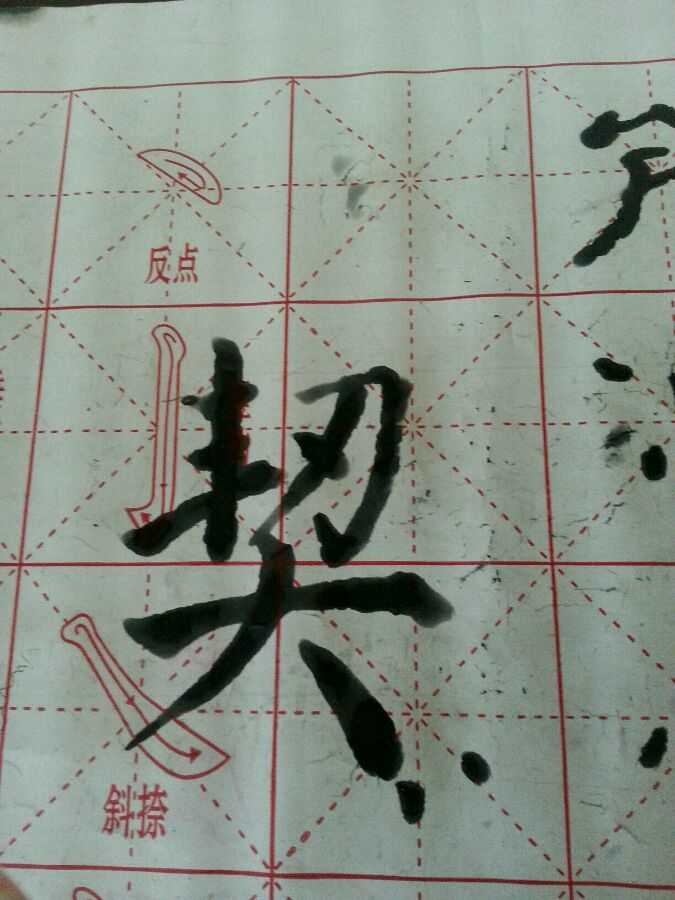 反点
契
斜捺